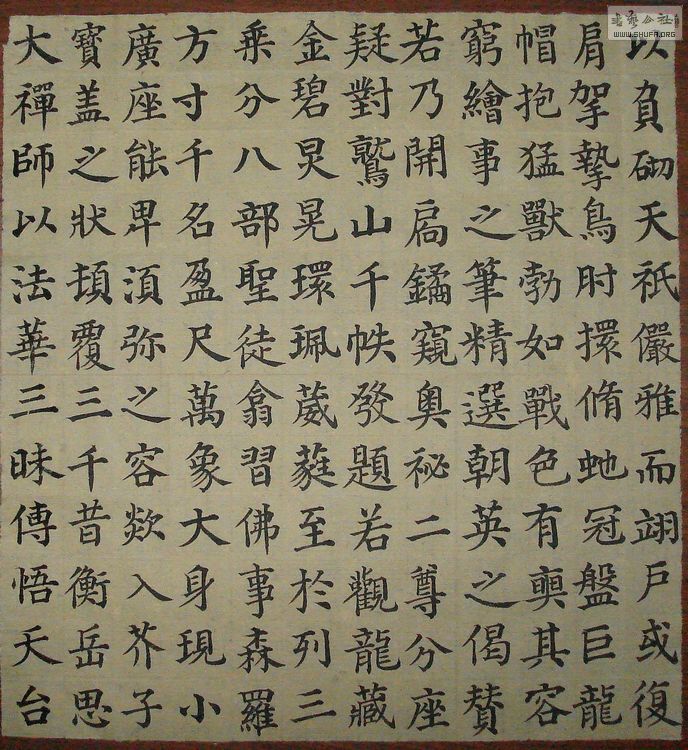 以負砌天祇儼雅而翊戶或復
肩挐摯鳥肘擐脩虵冠盤巨龍
帽抱猛獸勃如戰色有奭其容
窮繪事之筆精選朝英之偈贊
若乃開扃鐍窺奧祕二尊分座
疑對鷲山千帙發題若觀龍藏
金碧炅晃環珮葳蕤至於列三
乘分八部聖徒翕習佛事森羅
方寸千名盈尺萬象大身現小
廣座能卑須弥之容欻入芥子
寶盖之狀頓覆三千昔衡岳思
大禪師以法華三昧傳悟天台
書藝公社
WWW.SHUFA.ORG